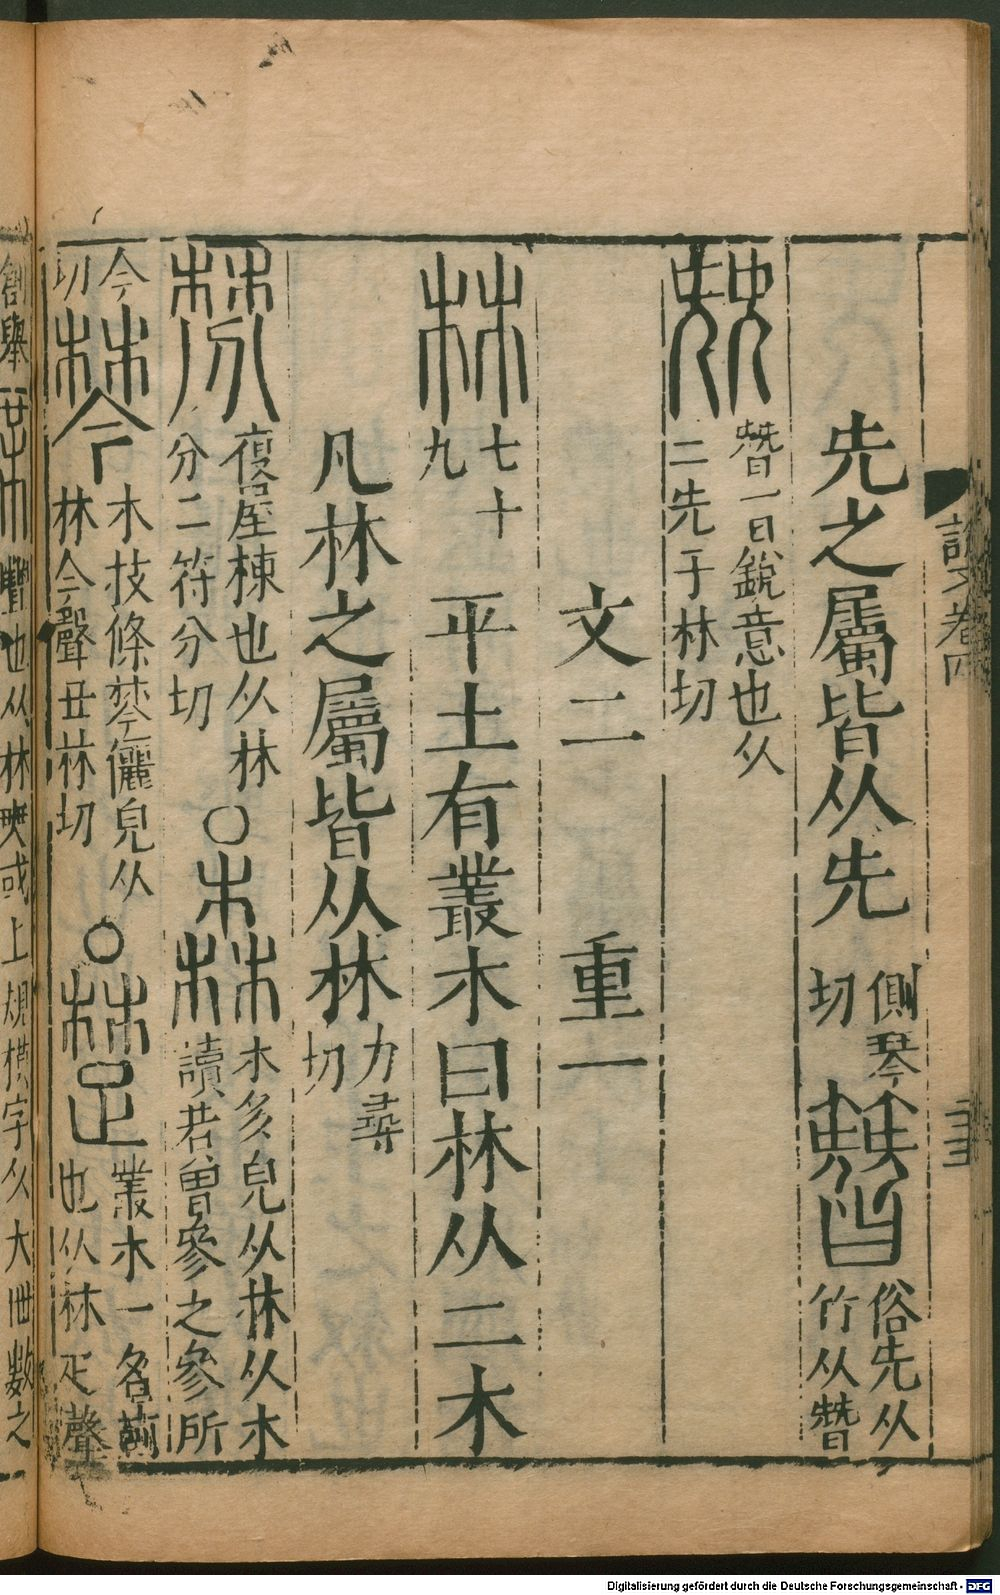 說文卷四
先之屬皆从先 側琴切 簪 俗先从竹从朁
兓 朁一曰銳意也从二先子林切
文二 重一
林 七十九 平土有叢木曰林从二木
凡林之屬皆从林 力尋切
棼 復屋棟也从林分二符分切 ○ 森 木多皃从林从木讀若曾參之參所
今切 棽 木枝條棽儷皃从林今聲丑林切 ○ 楚 叢木一名荊也从林疋聲
創舉 豐也从林 或上規模字从大 數之
Digitalisierung gefördert durch die Deutsche Forschungsgemeinschaft - DFG